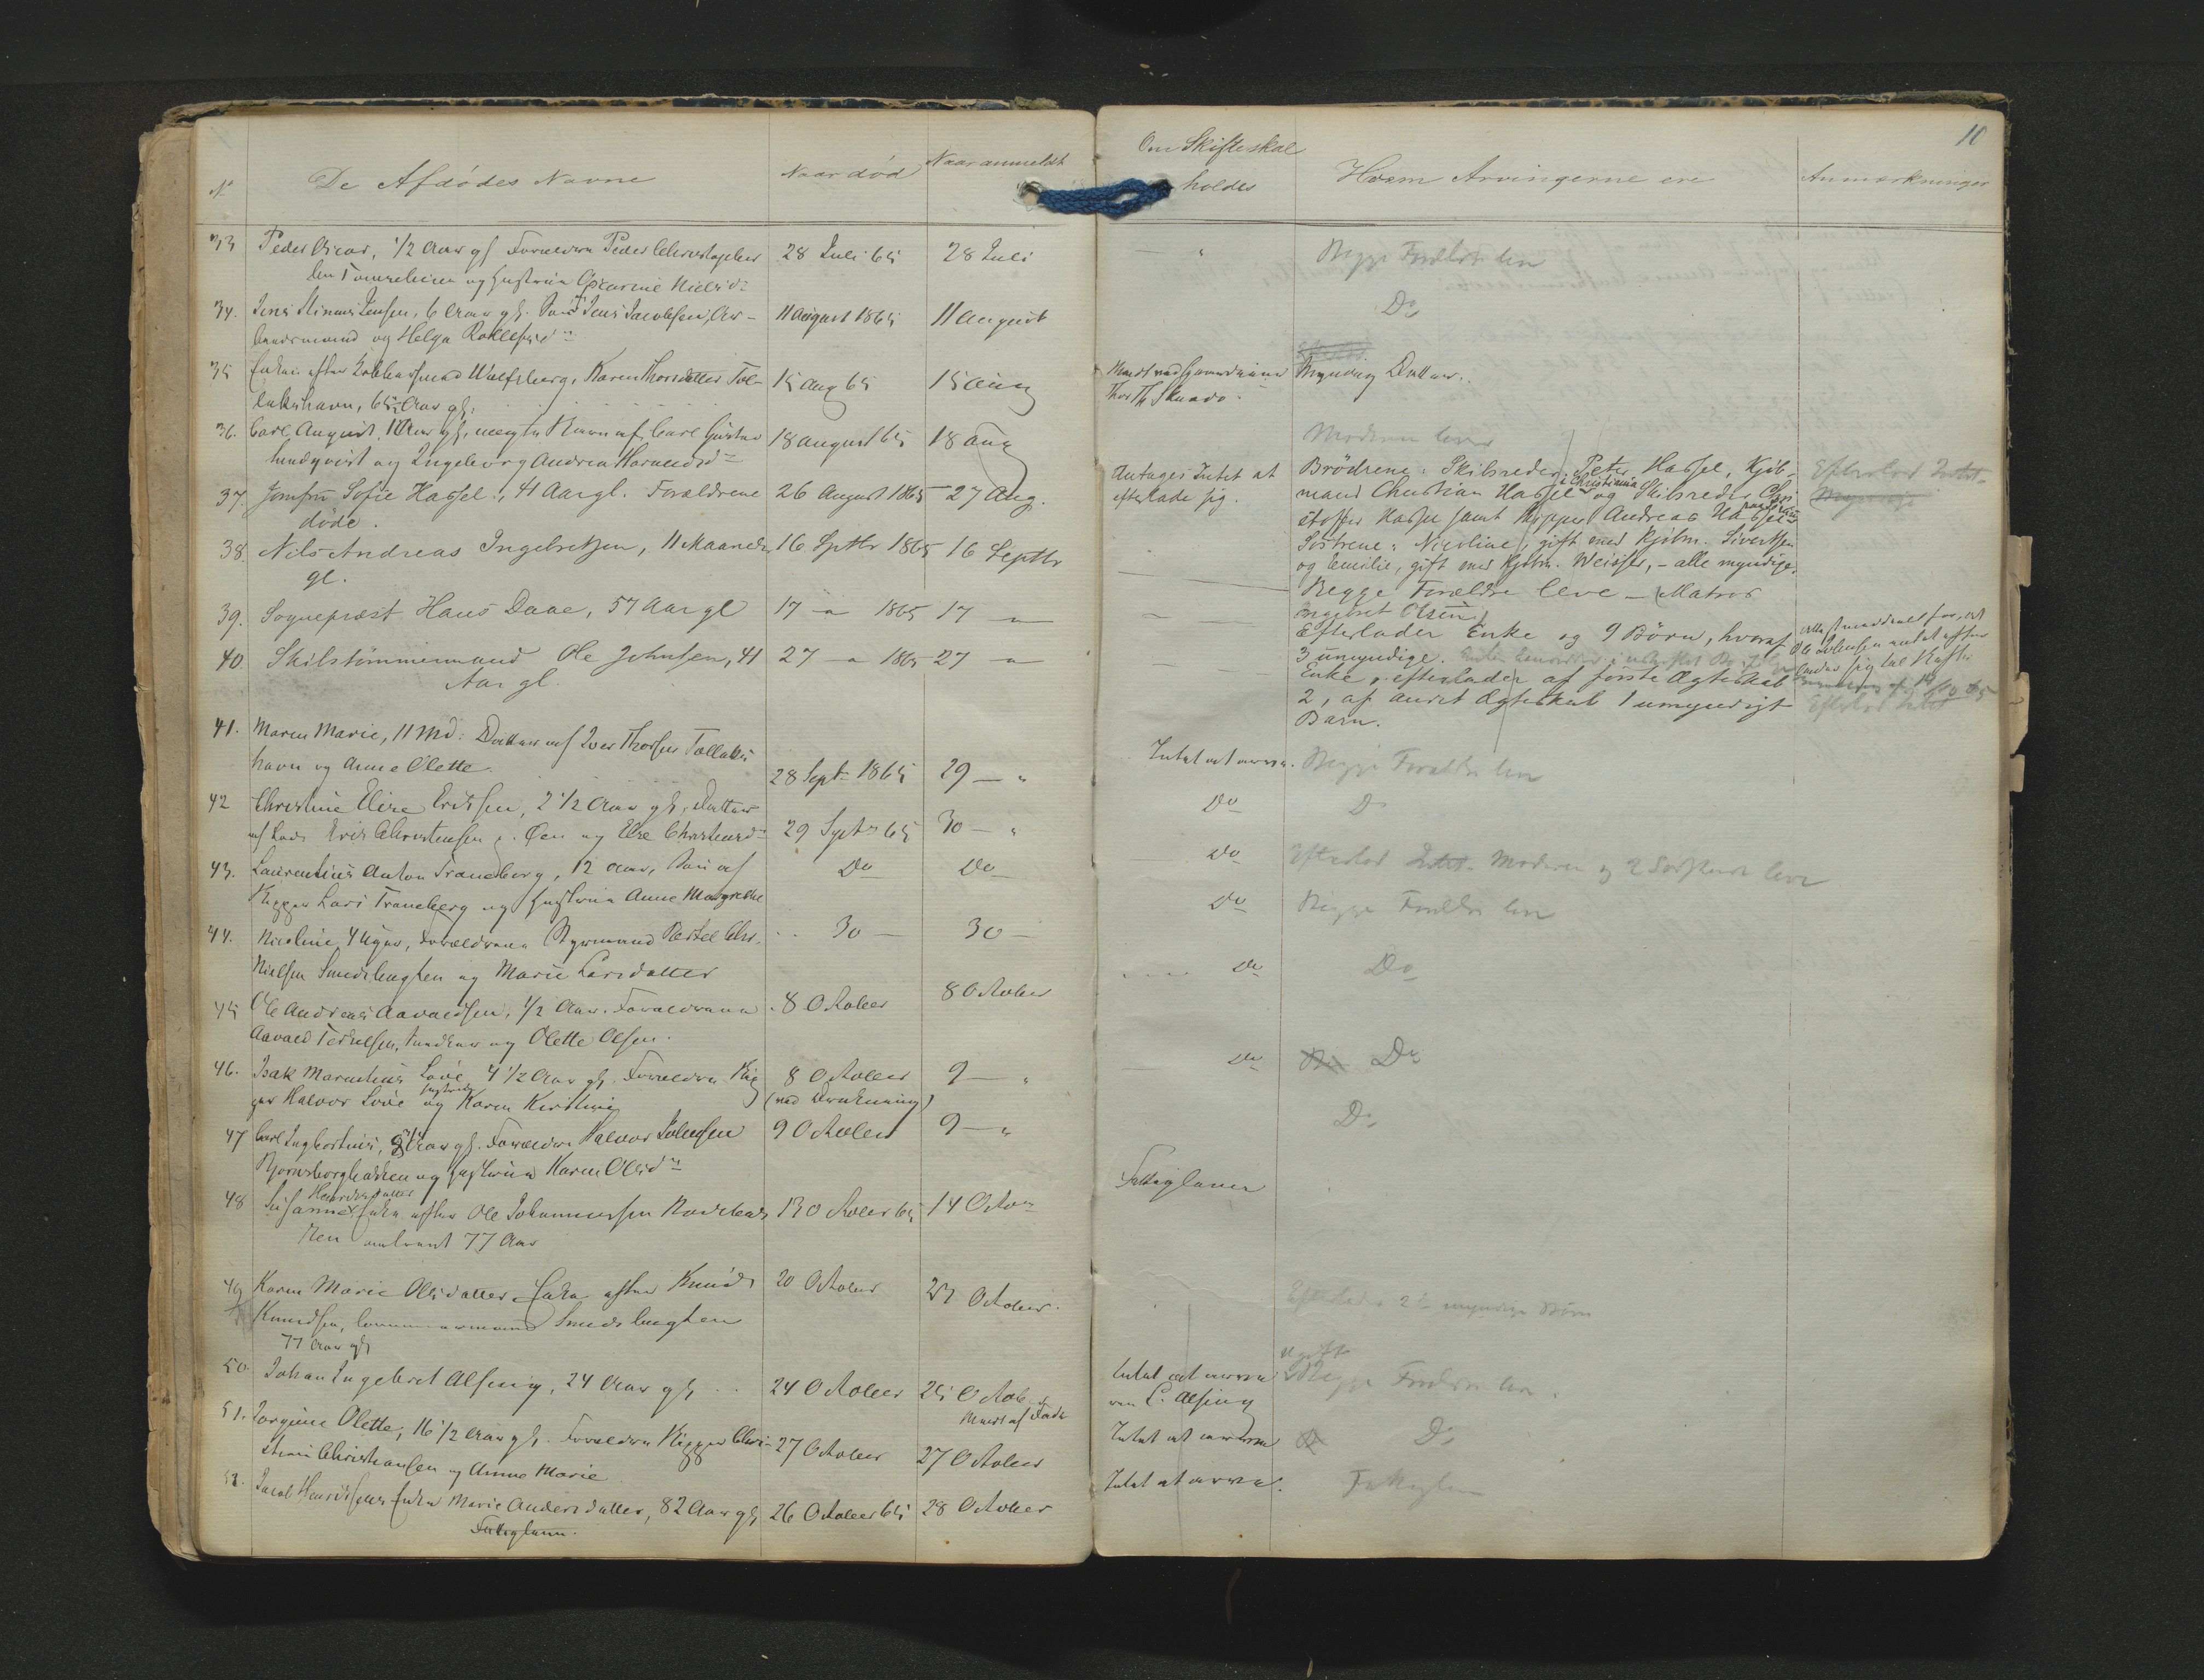 No
De Afdødes Navne
Naar død
Naar anmeldt
33 Peder Oscar, 1/2 Aar gl Forældre Peder Christopher
og Hustrue Oscarine Nielsd.
28 Juli 65
28 Juli
34. Jens Jensen, 6 Aar gl. Jens Jacobsen, Ar-
beidsmand og Helga
11 August 1865
11 August
35 Enken efter Wulfsberg, Karen Thorsdatter Tol-
lakshavn, Aar gl:
15 Aug 65
15 Aug
36. Carl August, Aar gl, uægte Barn af Carl Gustav
Lundqvist og Ingeborg Andrea
18 August 65
18 Aug
37. Jomfru Sofie Hassel, 41 Aar gl. Forældrene
døde.
26 August 1865
27 Aug.
38. Nils Andreas Ingebretsen, 11 Maaneder
gl.
16 Septbr 1865
16 Septbr
39. Sognepræst Hans Daae, 57 Aar gl
17 — " 1865
17 — "
40. Skibstømmermand Ole Johnsen, 41
Aar gl.
27 — " 1865
27 — "
41. Maren Marie, 11 Md: Datter af Iver Thorsen Tollaks
havn og Anne Olette.
28 Sept 1865
29 — "
42 Christine Elise Eriksen, 2 1/2 Aar gl, Datter
af Erik Christensen og Else
29 Sept 65
30 — "
43. Laurentius Anton Traneberg, 12 Aar, Søn af
Skipper Lars Traneberg og Hustrue Anne Margrethe
Do
Do
44. Nicoline, 4 Uger, Forældrene Styrmand
Nielsen Smedsbugten og Marie Larsdatter
30 —
30 —
45 Ole Andreas Aavaldsen, 1/2 Aar. Forældrene
Aavald Terkelsen, og Olette Olsen.
8 October
8 October
46. Isak Marentius Love 4 1/2 Aar gl. Forældre Skip
per Halvor Love og Hustrue Karen Kirstine
8 October
(ved Drukning)
9 — "
47 Carl Ingbertinus, Aar gl. Forældre Halvor Johnsen
og Hustrue Karen Olsd
9 October
9 — "
48 Susanne Henriksdatter Enke efter Ole Johannessen
omtrent 77 Aar
13 October 65
14 Octo
49 Karen Marie Olsdatter Enke efter Knud
Knudsen, Smedsbugten
77 Aar gl
20 October
23 October.
50. Johan Ingebret Alsing, 24 Aar gl
24 October
25 Octob.
Meldt af Fader
51. Jorgine Olette, 16 1/2 Aar gl. Forældre Skipper Chri-
stian Christiansen og Anne Marie
27 October
27 October
52. Jacob Henriksens Enke Marie Andersdatter, 82 Aar gl,
Fattiglem.
26 October 65
28 October
Om Skifte skal
holdes
Hvem Arvingerne ere
Anmærkninger
10
Begge Forældre leve
Do
Thor Th
Myndig Datter.
Moderen lever
Antages Intet at
efterlade sig.
Brødrene: Skibsreder Peter Hassel, Kjøb-
mand Christian Hassel i Christiania og Skibsreder Chri
stoffer Hassel samt Skipper Andreas Hassel
Søstrene: Nicoline, gift med Kjøbm. Sivertsen
og Emilie, gift med Kjøbm. Weisser, - alle myndige.
Efterlod Intet.
Begge Forældre leve — (Matros
Ingebret Olsen)
Efterlader Enke og 9 Børn, hvoraf
3 umyndige.
Enke, efterlader af første Ægteskab
2, af andet Ægteskab 1 umyndigt
Barn.
Efterlod Intet
Intet at arve.
Begge Forældre leve
Do
D
Do
Efterlod Intet. Moderen og 2 Søskende leve
Do
Begge Forældre leve
Do
Do
Do
Do
Do
Fattiglem
Efterlader 2 myndige Børn
Intet at arve
C. Alsing
Ugift
Begge Forældre leve.
Intet at arve
Do
Intet at arve.
Fattiglem